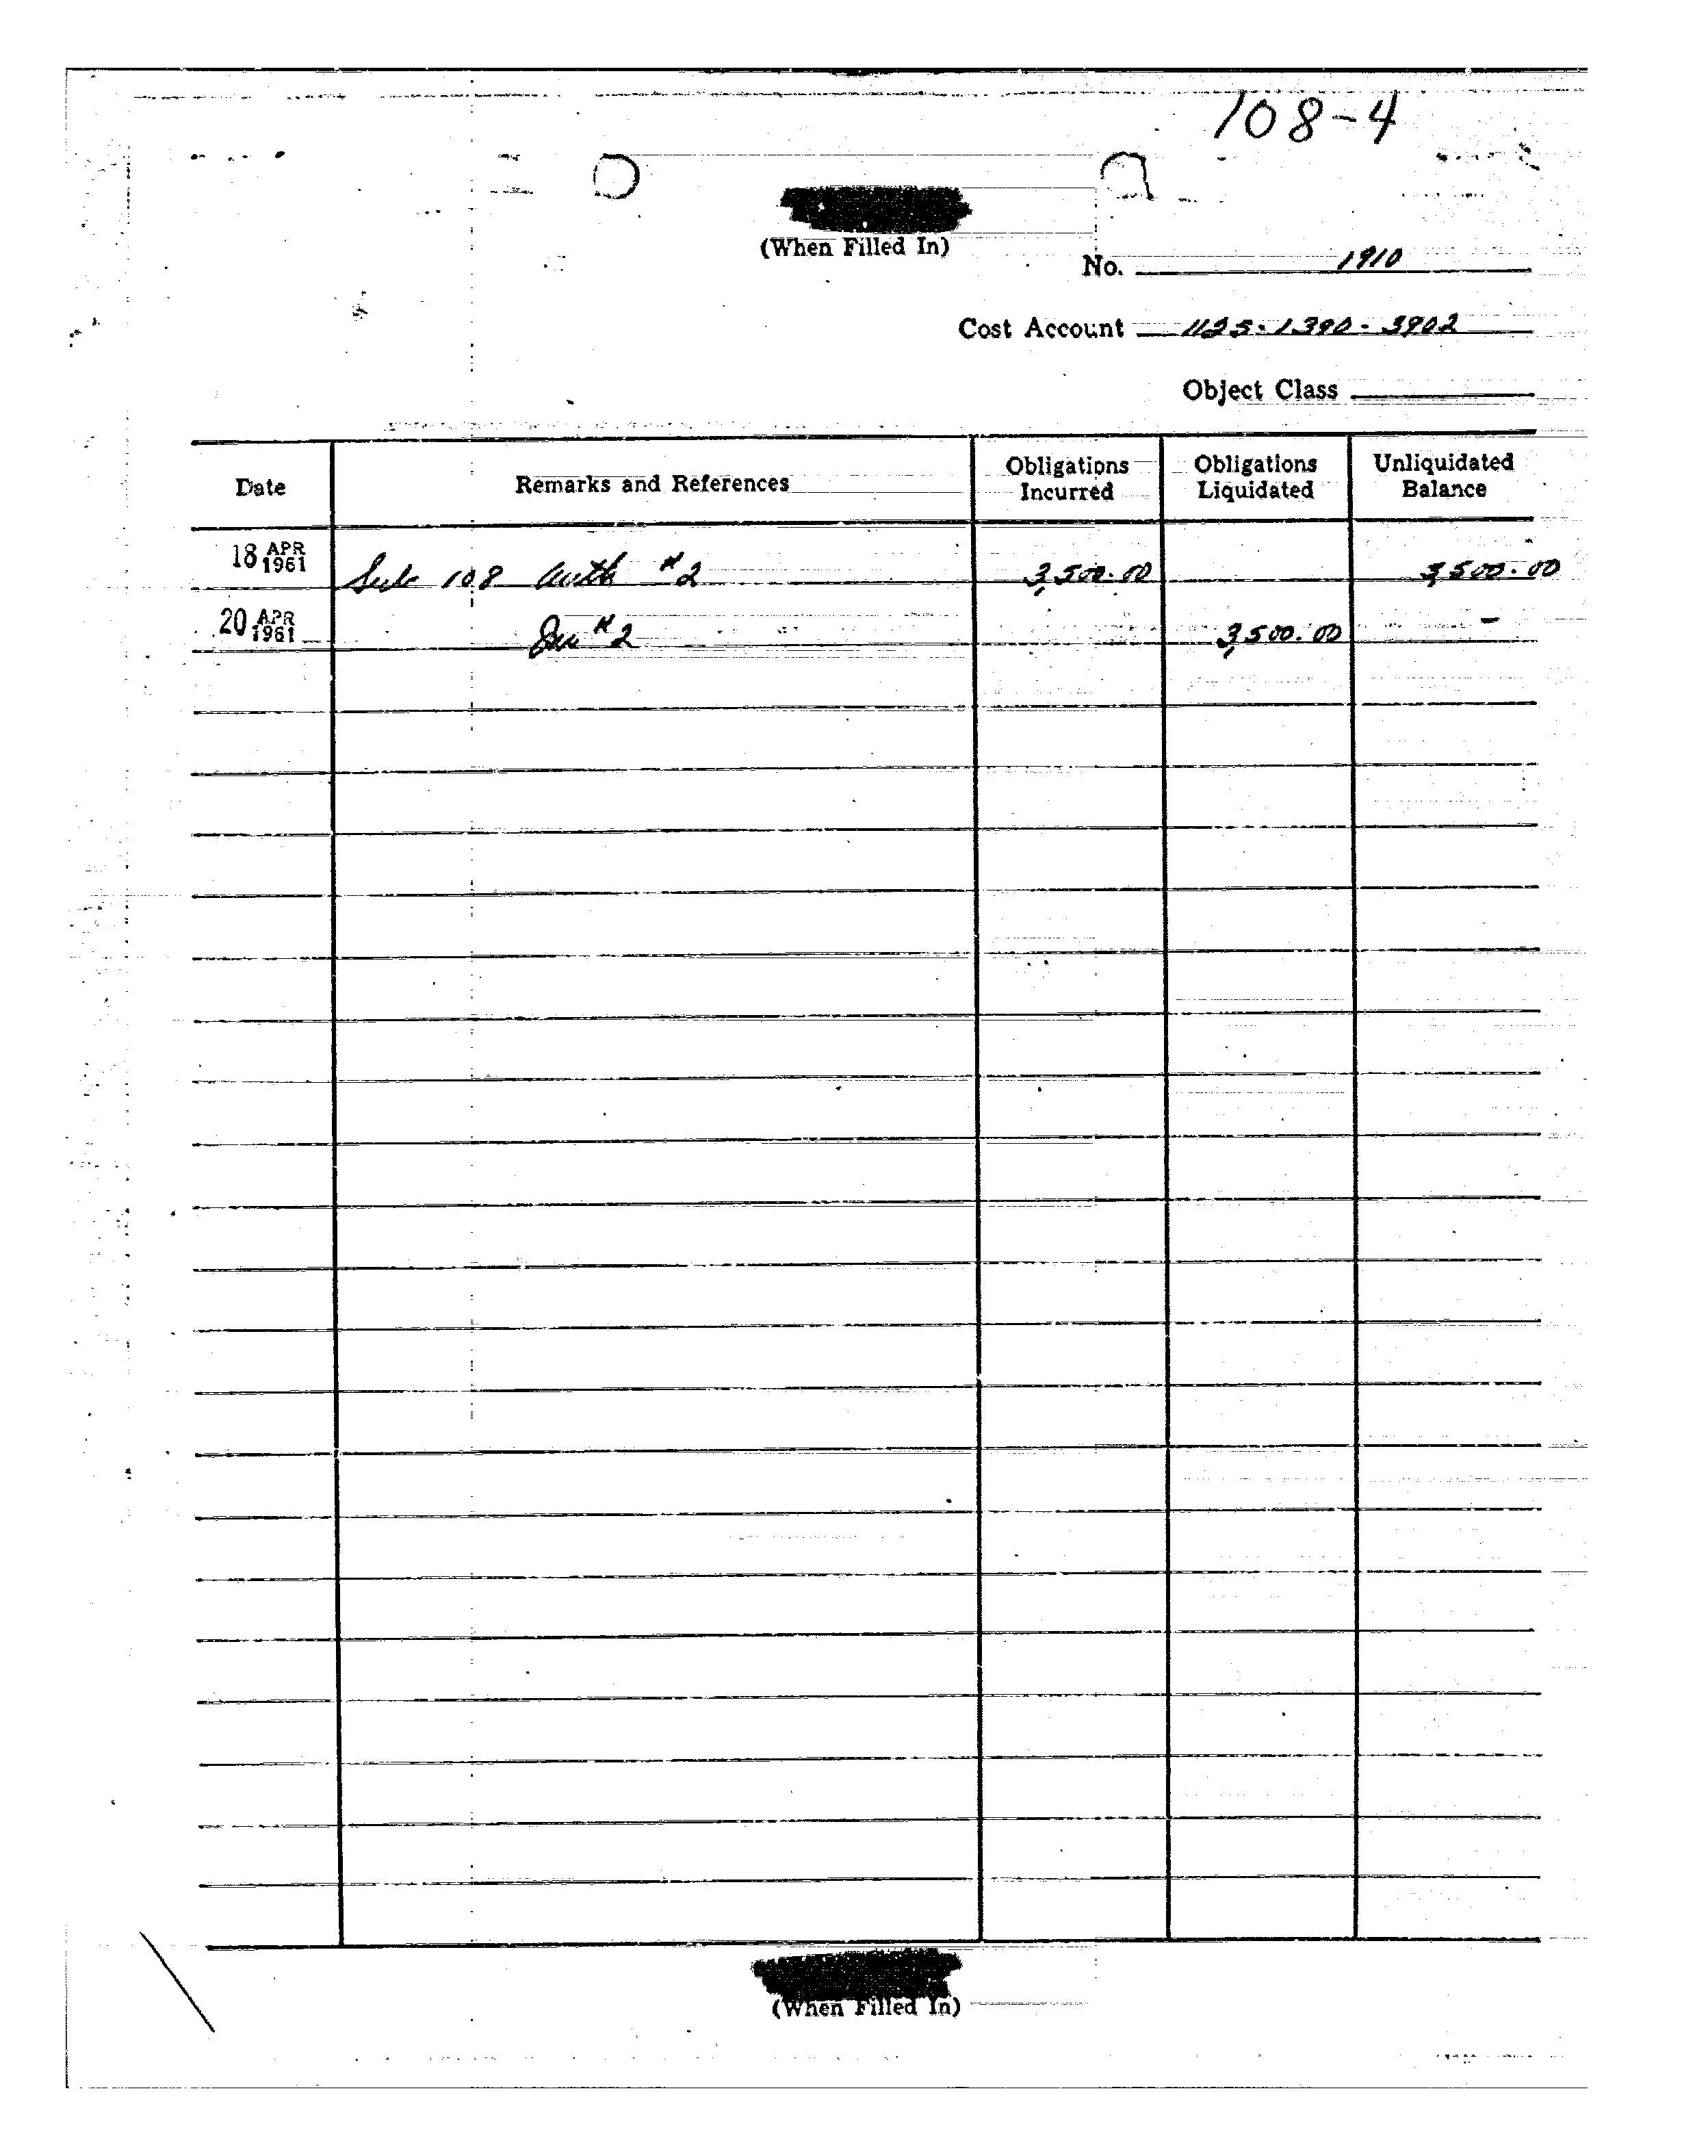 108-4
(When Filled In)
No. 1910
Cost Account 1125-1390-3902
Object Class
Date Remarks and References Obligations Incurred Obligations Liquidated Unliquidated Balance
18 APR 1961 Sub 108 Auth #2 3,500.00 3,500.00
20 APR 1961 #2 3,500.00 -
(When Filled In)